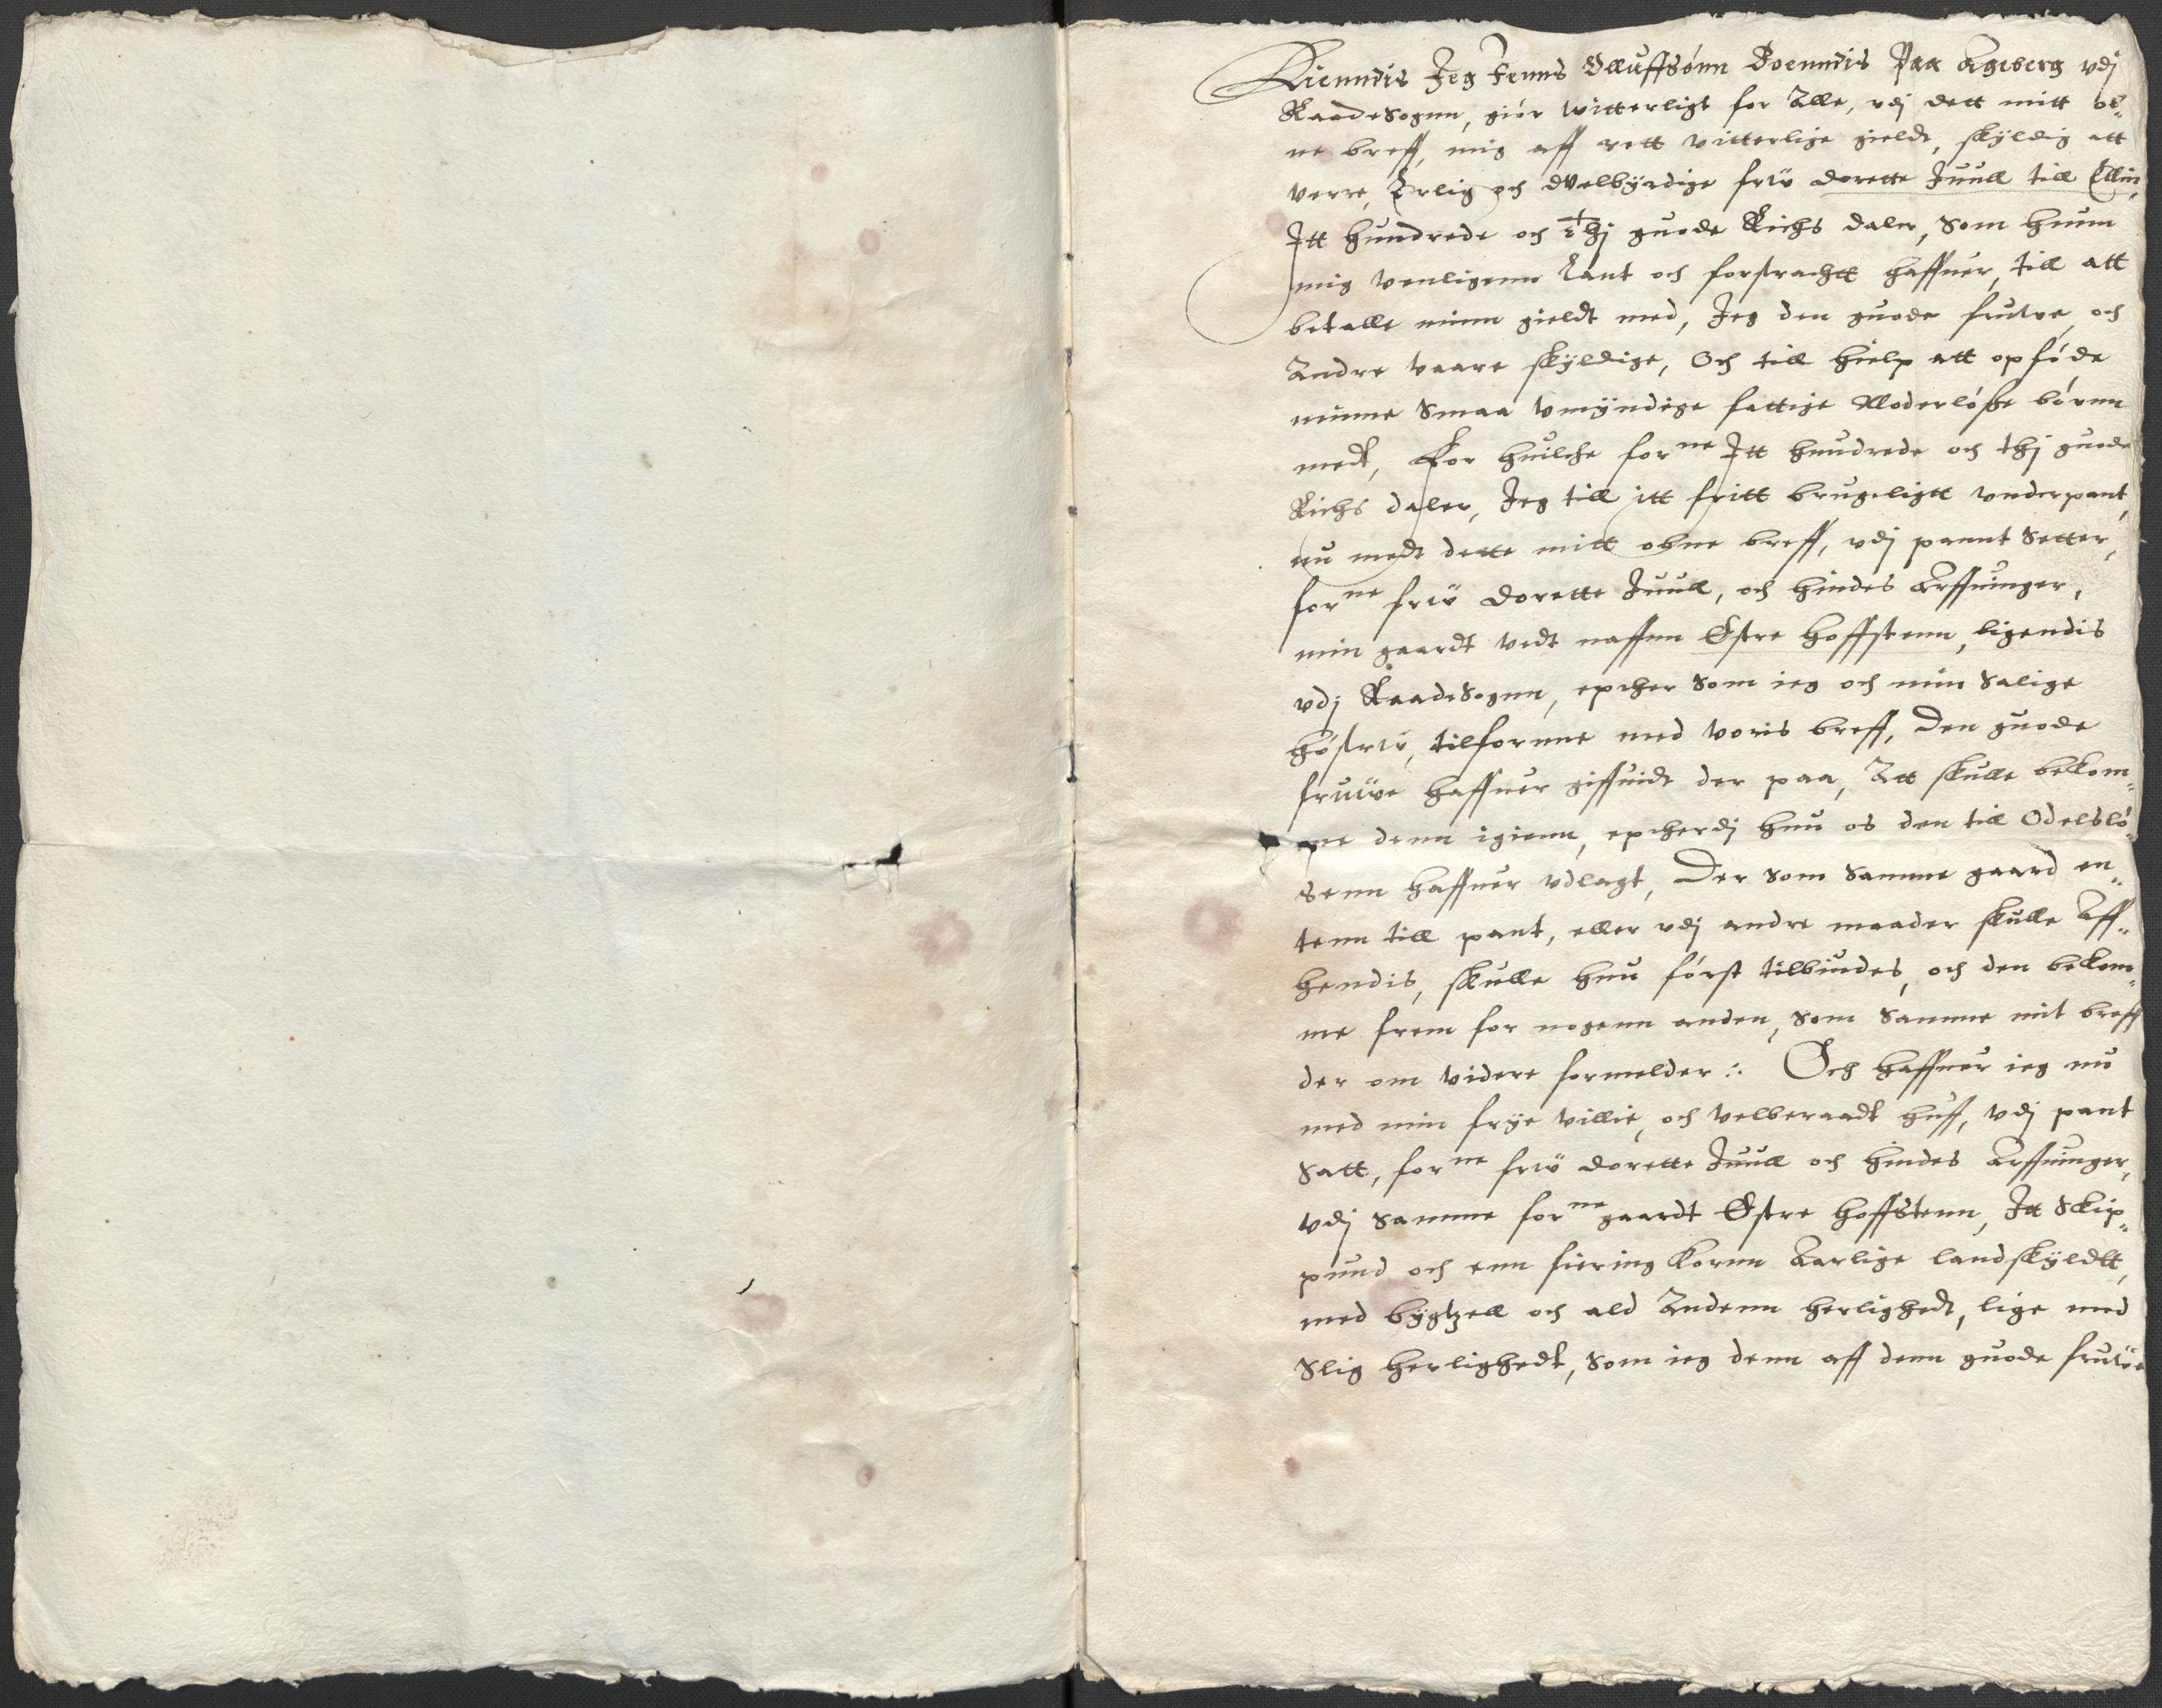 Kienndis Jeg Jenns Olluffsönn Boenndis Paa Ageberg vdj
Raadesognn, giör witterligt for Alle, vdj dett mitt ob„
ne breff, mig aff rett vitterlige gieldt, skÿldig att
verre, Erlig och Velbÿrdige frw dorette Juull till Ellin,
Jtt hundrede och thj guode Richs daler, Som hunn
mig venligenn lant och forstrachtt haffuer, till att
betalle minn gieldt med, Jeg den guode frutve, och
Andre vaare skÿldige, Och till hielp att opföde
minne Smaa vmÿndige fattige Moderlösse börnn
medt, For huilche forne Jtt hundrede och thj guode
Richs daler, Jeg till itt fritt brugeligtt vnderpant,
nu medt dette mitt obne breff, vdj pannt Setter,
forne frw dorette Juull, och hindes Arffuinger,
min gaardt vedt naffnn Östre Hoffstenn, ligendis
vdj Raadesognn, epther Som ieg och min Salige
höstrw, tilfornne med voris breff, Den guode
fruwe haffuer giffuidt der paa, Att skulle bekom„
me denn igienn, eptherdj hun os den till Odelslö„
senn haffuer vdlagt, Der som Samme gaard en„
tenn till pant, eller vdj andre maader skulle Aff„
hendis, skulle hun först tilbiudes, och den bekom„
me frem for nogenn anden, Som Samme mit breff
der om videre formelder :. Och haffuer ieg nu
med min frÿe villie, och velberaadt huff, vdj pant
Satt, forne frw dorette Juull och hindes Arffuinger,
vdj Samme forne gaardt Östre Hoffstenn, Jtt Skip„
pund och enn fiering Kornn Aarlige landskÿldtt,
med bÿgtzell och ald Andenn herlighedt, lige med
Slig herlighedt, Som ieg denn aff denn guode fruwe